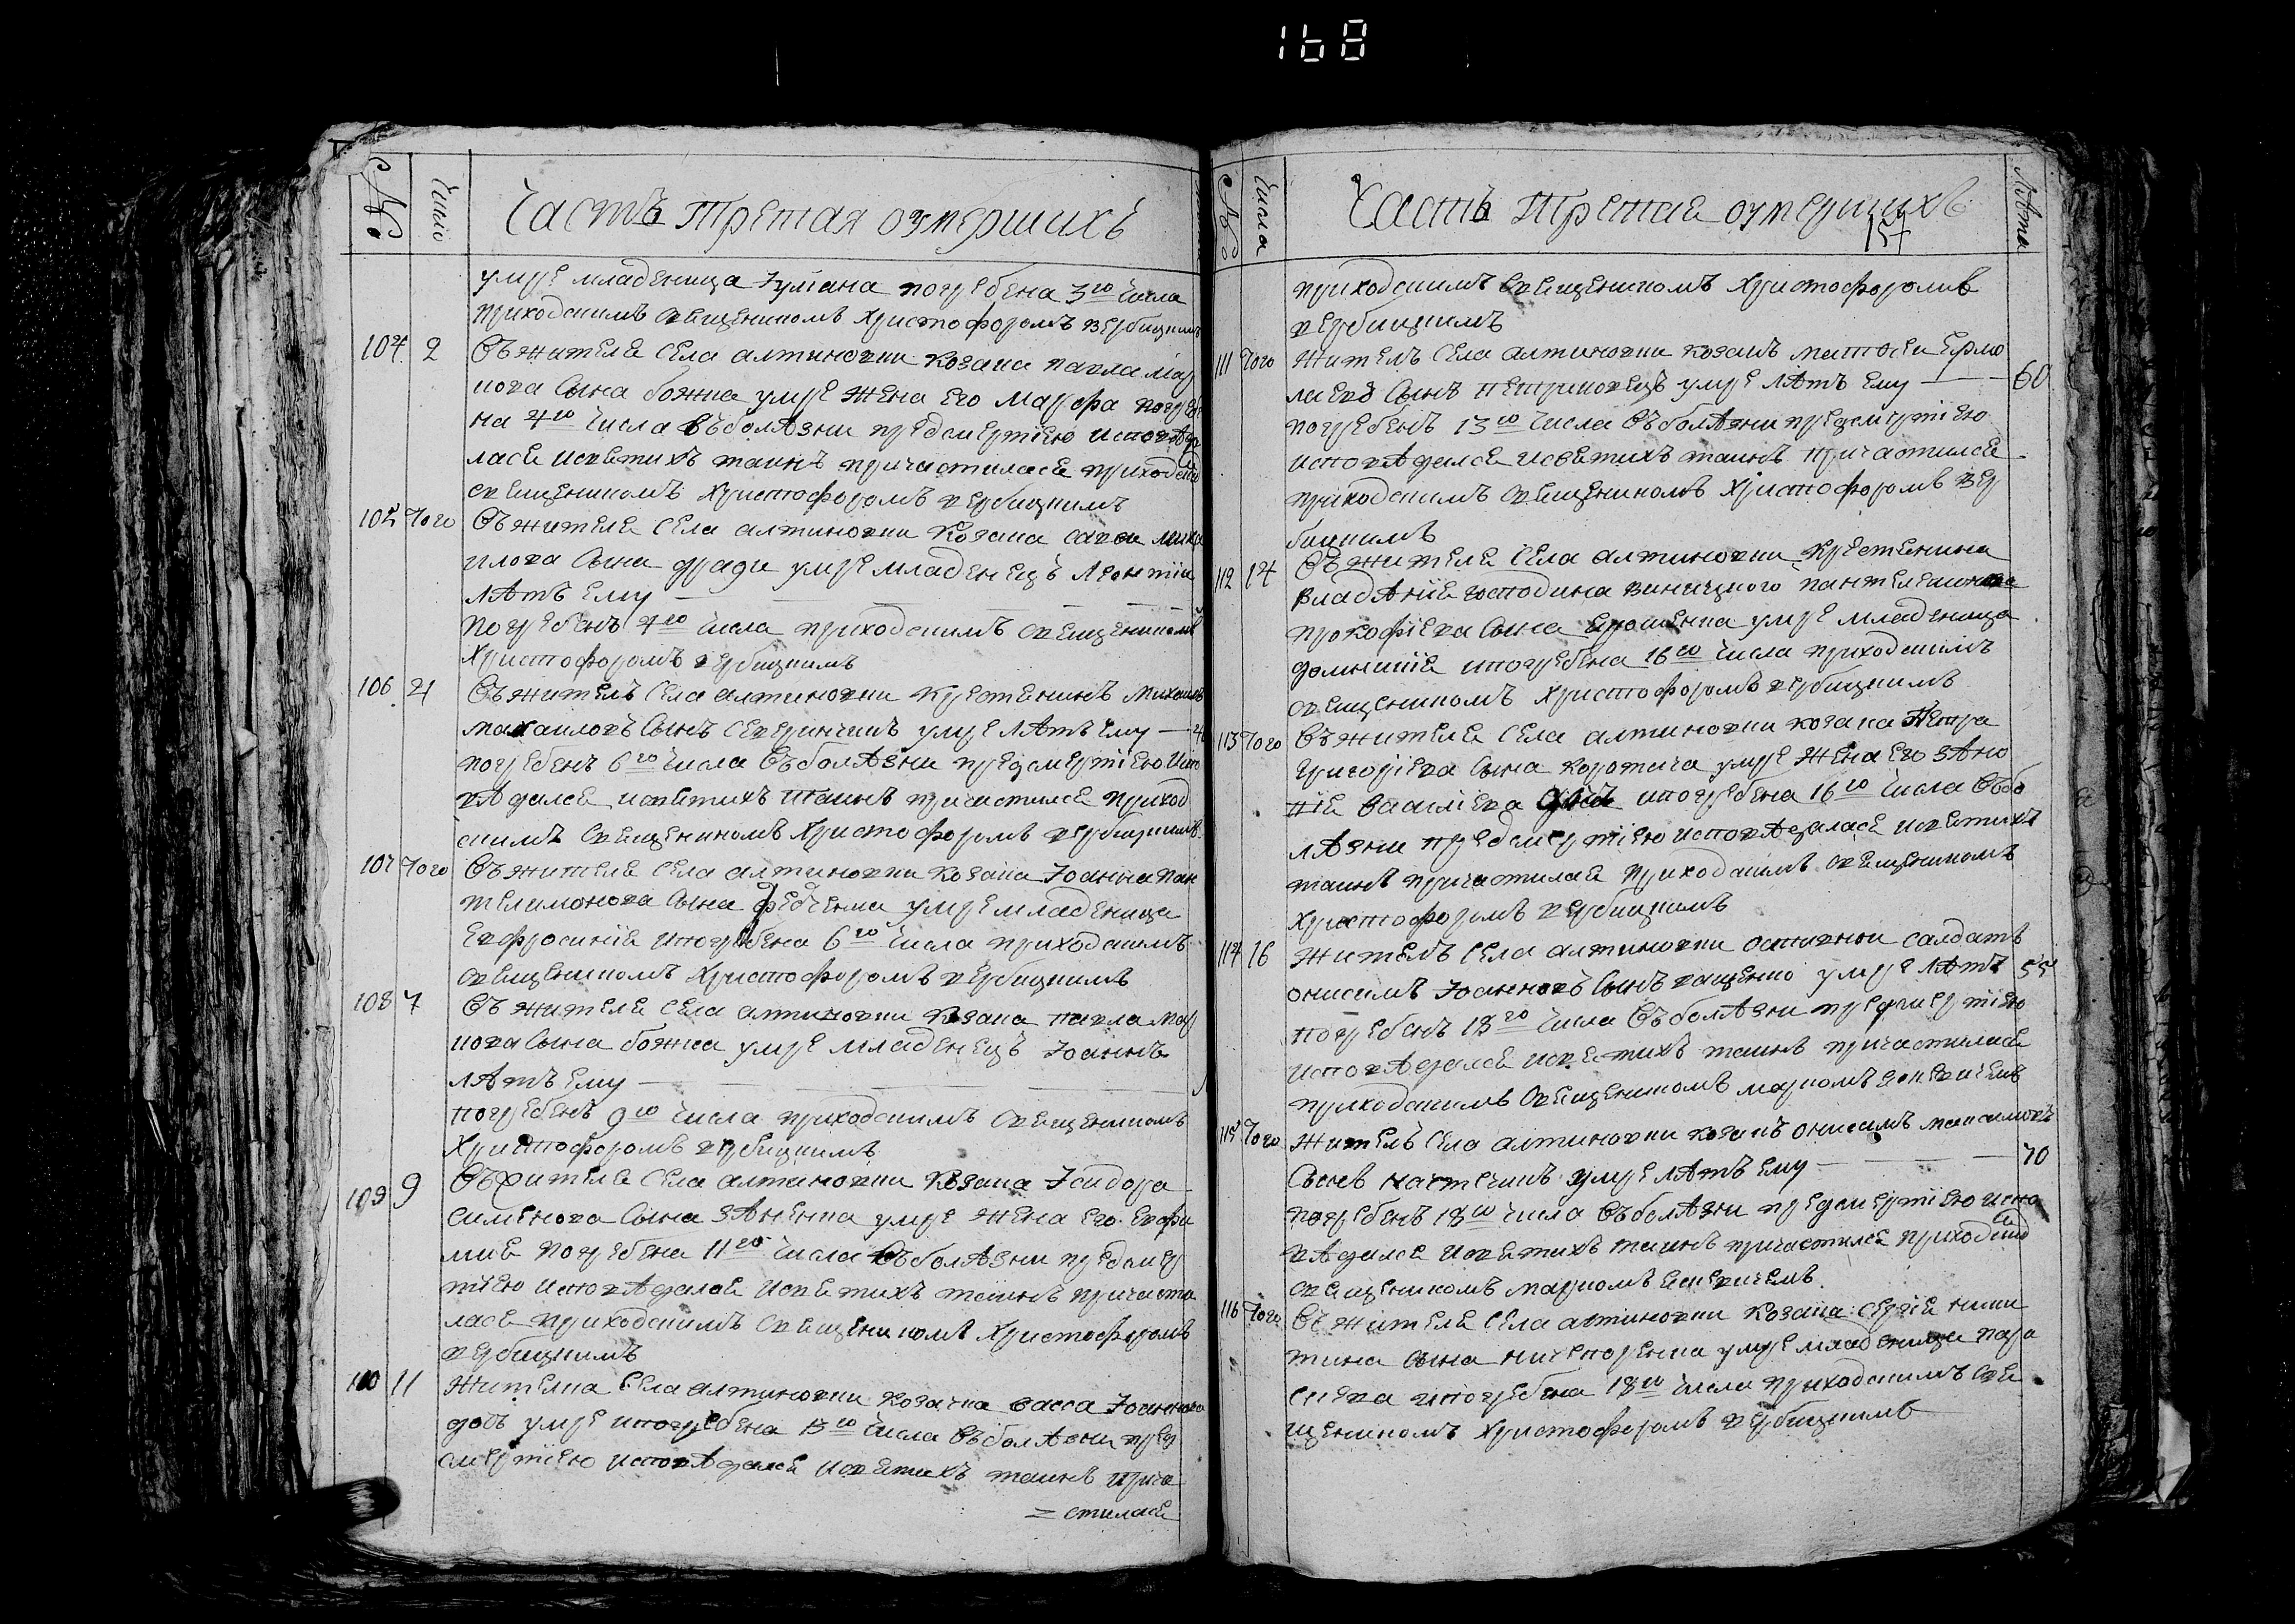 168
№
Число
Часть третая оумершихъ
умре младеница Иулiана погребена 3го числа
приходскимъ священикомъ Христофоромъ вербицкимъ
104 2 Съ жителя села алтиновки козака павла мар
кова сына божка умре жена его Марфа погребе
на 4го числа въ болѣзни предсмертiею исповѣда
лася и святихъ таинъ причастилася приходским
священикомъ Христофоромъ вербицкимъ
105 Того Съ жителя села алтиновки козака савы миха
илова сына умре младенецъ Леонтiи
лѣтъ ему
погребенъ 4го числа приходскимъ священикомъ
Христофоромъ вербицкимъ
106 4 Съ житель села алтиновки крестянинъ Михаилъ
михаиловъ сынъ умре лѣтъ ему
погребенъ 6го числа въ болѣзни предсмертiею испо
вѣдался и святихъ таинъ причастился приход
скимъ священикомъ Христофоромъ вербицкимъ
107 Того Съ жителя села алтиновки козака Iоанна пан
телимонова сына умре младеница
Евфросинiя и погребена 6го числа приходскимъ
священикомъ Христофоромъ вербицкимъ
108 7 Съ жителя села алтиновки козака павла мар
кова сына божка умре младенецъ Iоаннъ
лѣтъ ему
погребенъ 9го числа приходскимъ священикомъ
Христофоромъ вербицкимъ
109 9 Съ жителя села алтиновки козака Исидора
сименова сына умре жена его Евфи
мия погребена 11го числа въ болѣзни предсмер
тiею исповѣдалася и святихъ таинъ причасти
лася приходскимъ священикомъ Христофоромъ
вербицкимъ
110 11 Жителка села алтиновки козачка васса Iоаннова
дочь умре и погребена 13го числа въ болѣзни пред
смертiею исповѣдалася и святихъ таинъ прича
= стилася
№
Числа
Часть третая оумершихъ
157
Лѣта
приходскимъ священикомъ Христофоромъ
вербицкимъ
111 Того Житель села алтиновки козакъ матвеи Ермо
лаевъ сынъ умре лѣтъ ему 60
погребенъ 13го числа въ болѣзни предсмертiею
исповѣдался и святихъ таинъ причастился
приходскимъ священикомъ Христофоромъ вер
бицкимъ
112 14 Съ жителя села алтиновки крестянина
владѣнiя господина пантелеимона
прокофiева сына умре младеница
домникiя и погребена 16го числа приходскимъ
священикомъ Христофоромъ вербицкимъ
113 Того Съ жителя села алтиновки козака Петра
григорiева сына умре жена его зѣно
вiя василiева и погребена 16го числа въ бо
лѣзни предсмертiею исповѣдалася и святихъ
таинъ причастилася приходскимъ священикомъ
Христофоромъ вербицкимъ
114 16 Житель села алтиновки отставнои салдатъ
онисимъ Iоанновъ сынъ умре лѣтъ 55
погребенъ 18го числа въ болѣзни предсмертiею
исповѣдался и святихъ таинъ причастился
приходскимъ священикомъ маркомъ
115 Того Житель села алтиновки козакъ онисимъ максимовъ
сынъ умре лѣтъ ему 70
погребенъ 18го числа въ болѣзни предсмертiею испо
вѣдался и святихъ таинъ причастился приходским
священикомъ маркомъ
116 Того Съ жителя села алтиновки козака сергiя ники
тина сына умре младеница пара
скева и погребена 18го числа приходскимъ свя
щеникомъ Христофоромъ вербицкимъ